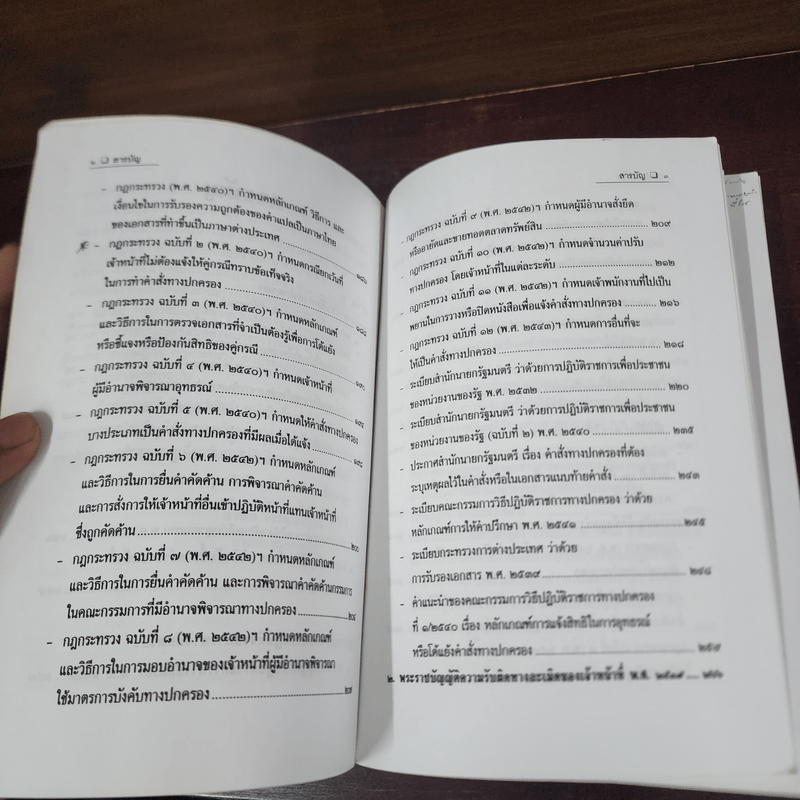 ๒ ❏ สารบัญ
- กฎกระทรวง (พ.ศ. ๒๕๔๐)ฯ กำหนดหลักเกณฑ์ วิธีการ และ
เงื่อนไขในการรับรองความถูกต้องของคำแปลเป็นภาษาไทย
ของเอกสารที่ทำขึ้นเป็นภาษาต่างประเทศ
- กฎกระทรวง ฉบับที่ ๒ (พ.ศ. ๒๕๔๐)ฯ กำหนดกรณียกเว้นที่
เจ้าหน้าที่ไม่ต้องแจ้งให้คู่กรณีทราบข้อเท็จจริง
ในการทำคำสั่งทางปกครอง
- กฎกระทรวง ฉบับที่ ๓ (พ.ศ. ๒๕๔๐)ฯ กำหนดหลักเกณฑ์
และวิธีการในการตรวจเอกสารที่จำเป็นต้องรู้เพื่อการโต้แย้ง
หรือชี้แจงหรือป้องกันสิทธิของคู่กรณี
- กฎกระทรวง ฉบับที่ ๔ (พ.ศ. ๒๕๔๐)ฯ กำหนดเจ้าหน้าที่
ผู้มีอำนาจพิจารณาอุทธรณ์
- กฎกระทรวง ฉบับที่ ๕ (พ.ศ. ๒๕๔๐)ฯ กำหนดให้คำสั่งทางปกครอง
บางประเภทเป็นคำสั่งทางปกครองที่มีผลเมื่อได้แจ้ง
- กฎกระทรวง ฉบับที่ ๖ (พ.ศ. ๒๕๔๒)ฯ กำหนดหลักเกณฑ์
และวิธีการในการยื่นคำคัดค้าน การพิจารณาคำคัดค้าน
และการสั่งการให้เจ้าหน้าที่อื่นเข้าปฏิบัติหน้าที่แทนเจ้าหน้าที่
ซึ่งถูกคัดค้าน
- กฎกระทรวง ฉบับที่ ๗ (พ.ศ. ๒๕๔๒)ฯ กำหนดหลักเกณฑ์
และวิธีการในการยื่นคำคัดค้าน และการพิจารณาคำคัดค้านกรรมการ
ในคณะกรรมการที่มีอำนาจพิจารณาทางปกครอง
- กฎกระทรวง ฉบับที่ ๘ (พ.ศ. ๒๕๔๒)ฯ กำหนดหลักเกณฑ์
และวิธีการในการมอบอำนาจของเจ้าหน้าที่ผู้มีอำนาจพิจารณา
ใช้มาตรการบังคับทางปกครอง
สารบัญ ❏ ๓
- กฎกระทรวง ฉบับที่ ๙ (พ.ศ. ๒๕๔๒)ฯ กำหนดผู้มีอำนาจสั่งยึด
หรืออายัดและขายทอดตลาดทรัพย์สิน ๒๐๙
- กฎกระทรวง ฉบับที่ ๑๐ (พ.ศ. ๒๕๔๒)ฯ กำหนดจำนวนค่าปรับ
ทางปกครอง โดยเจ้าหน้าที่ในแต่ละระดับ ๒๑๒
- กฎกระทรวง ฉบับที่ ๑๑ (พ.ศ. ๒๕๔๒)ฯ กำหนดเจ้าพนักงานที่ไปเป็น
พยานในการวางหรือปิดหนังสือเพื่อแจ้งคำสั่งทางปกครอง ๒๑๖
- กฎกระทรวง ฉบับที่ ๑๒ (พ.ศ. ๒๕๔๓)ฯ กำหนดการอื่นที่จะ
ให้เป็นคำสั่งทางปกครอง ๒๑๘
- ระเบียบสำนักนายกรัฐมนตรี ว่าด้วยการปฏิบัติราชการเพื่อประชาชน
ของหน่วยงานของรัฐ พ.ศ. ๒๕๓๒ ๒๒๐
- ระเบียบสำนักนายกรัฐมนตรี ว่าด้วยการปฏิบัติราชการเพื่อประชาชน
ของหน่วยงานของรัฐ (ฉบับที่ ๒) พ.ศ. ๒๕๔๐ ๒๓๕
- ประกาศสำนักนายกรัฐมนตรี เรื่อง คำสั่งทางปกครองที่ต้อง
ระบุเหตุผลไว้ในคำสั่งหรือในเอกสารแนบท้ายคำสั่ง ๒๔๓
- ระเบียบคณะกรรมการวิธีปฏิบัติราชการทางปกครอง ว่าด้วย
หลักเกณฑ์การให้คำปรึกษา พ.ศ. ๒๕๔๑ ๒๔๕
- ระเบียบกระทรวงการต่างประเทศ ว่าด้วย
การรับรองเอกสาร พ.ศ. ๒๕๓๙ ๒๔๘
- คำแนะนำของคณะกรรมการวิธีปฏิบัติราชการทางปกครอง
ที่ ๑/๒๕๔๐ เรื่อง หลักเกณฑ์การแจ้งสิทธิในการอุทธรณ์
หรือโต้แย้งคำสั่งทางปกครอง
๒. พระราชบัญญัติความรับผิดทางละเมิดของเจ้าหน้าที่ พ.ศ. ๒๕๓๙